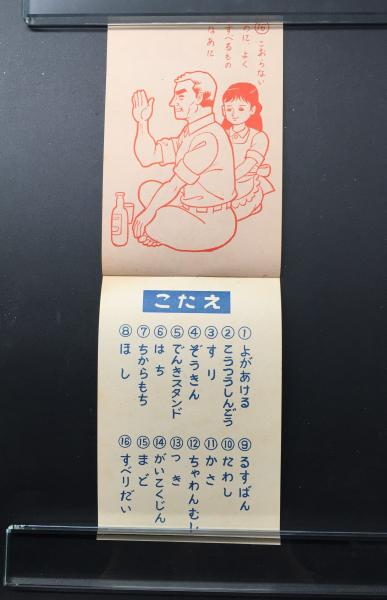 ⑯ こおらない
のに よく
すべるもの
なあに
こたえ
① よがあける
② こうつうしんごう
③ すり
④ ぞうきん
⑤ でんきスタンド
⑥ はち
⑦ ちからもち
⑧ ほし
⑨ るすばん
⑩ たわし
⑪ かさ
⑫ ちゃわんむし
⑬ つき
⑭ がいこくじん
⑮ まど
⑯ すべりだい